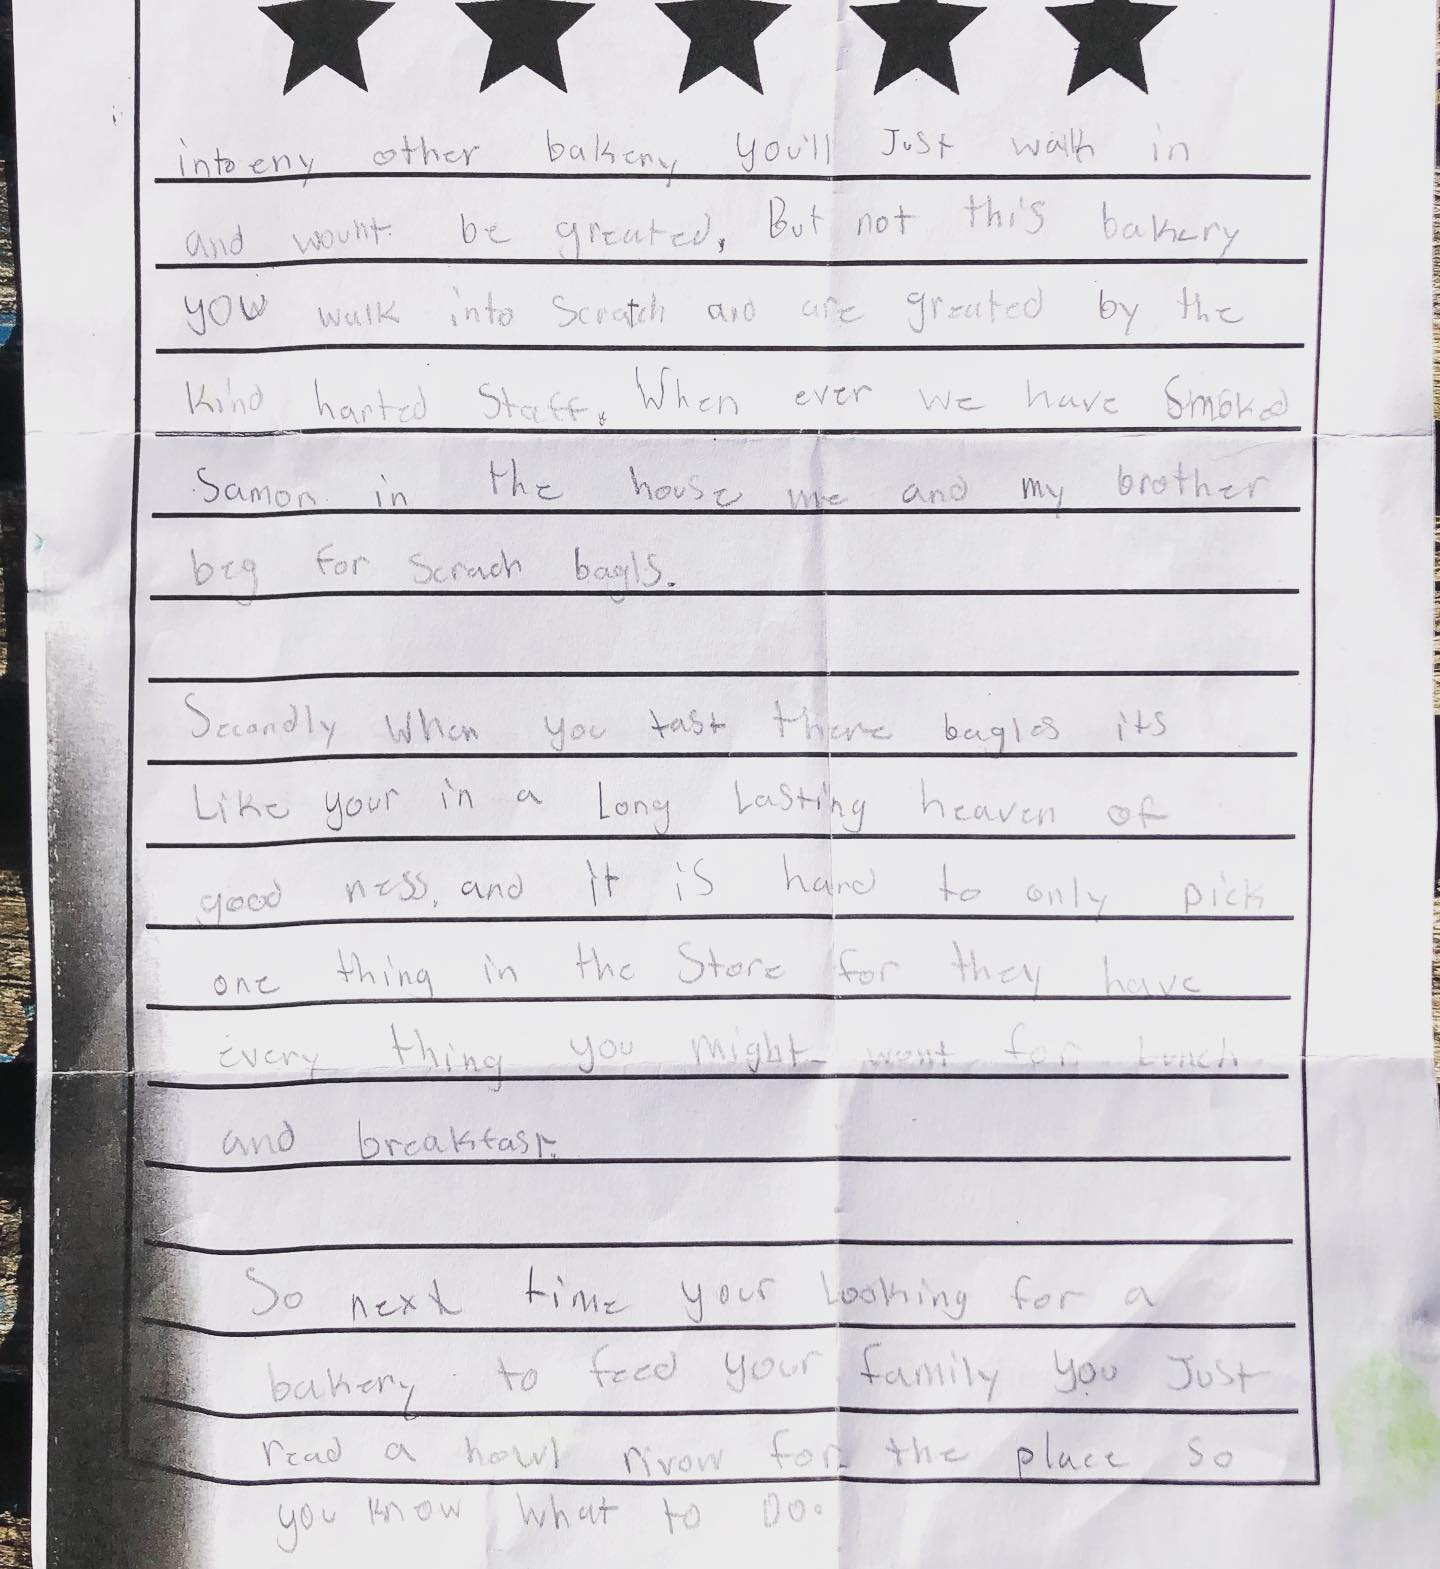 into eny other bakery you'll Just walk in
and wount be greated, But not this bakery
you walk into Scratch and are greated by the
Kind harted Staff. When ever we have Smoked
Samon in the house me and my brother
beg for Scrach bagls.
Secondly When you tast there bagles its
Like your in a Long Lasting heaven of
good ness. and it is hard to only pick
one thing in the Store for they have
every thing you might want for Lunch
and breakfast.
So next time your Looking for a
bakery to feed your family you Just
read a howl rivow for the place so
you know what to Do.